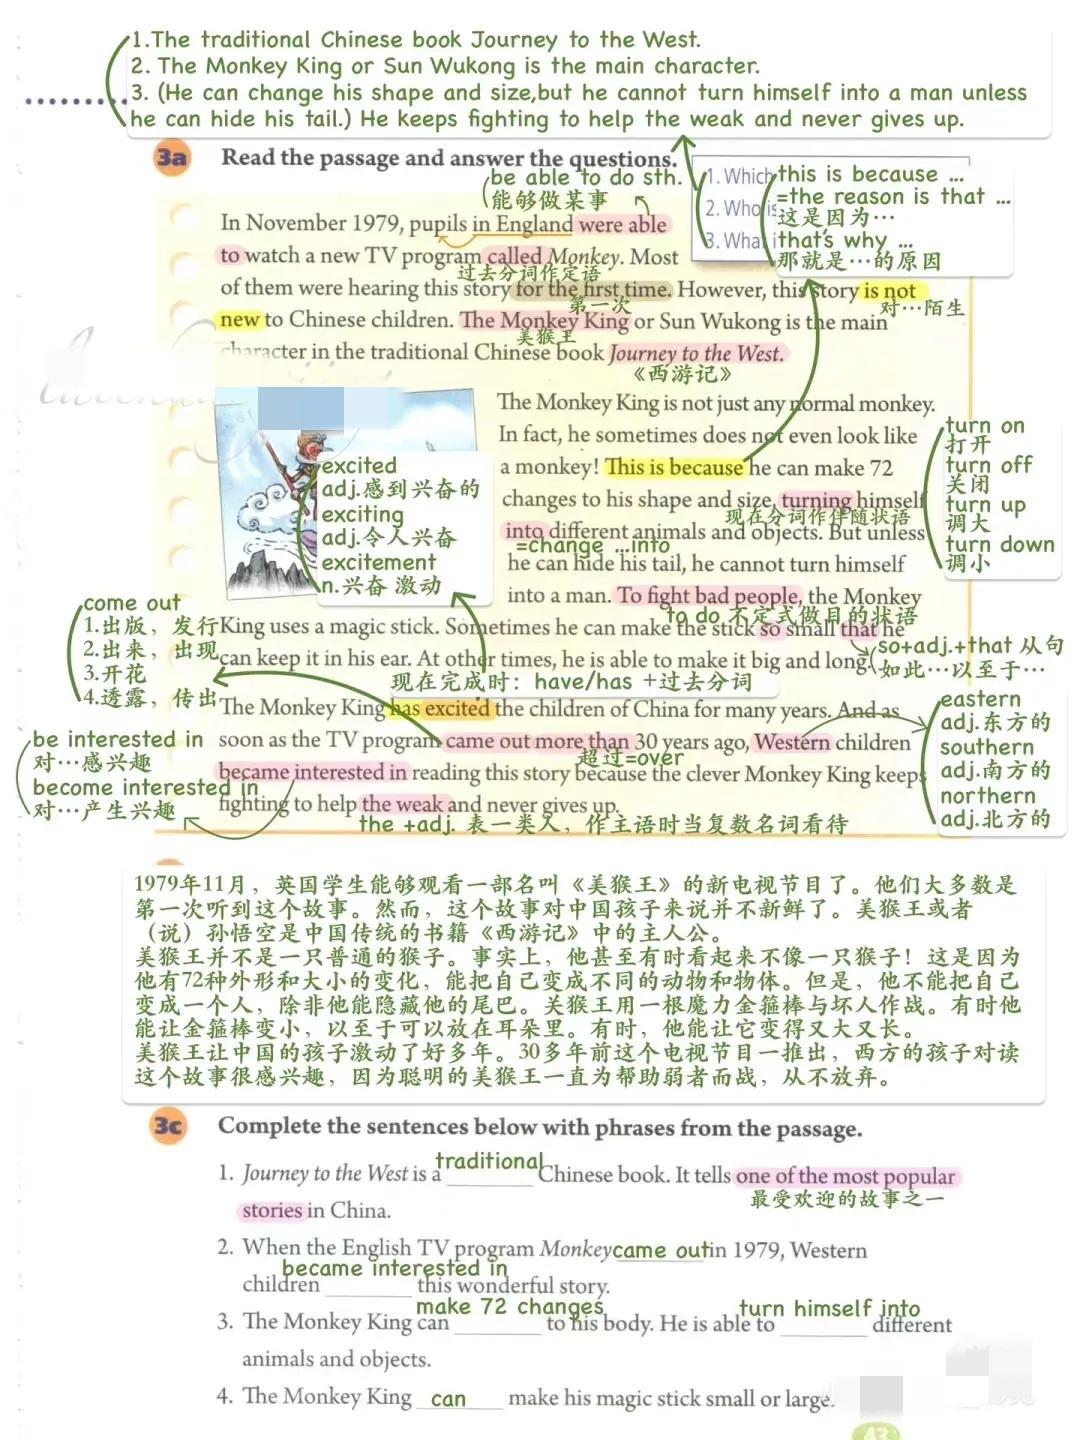 1.The traditional Chinese book Journey to the West.
2. The Monkey King or Sun Wukong is the main character.
3. (He can change his shape and size,but he cannot turn himself into a man unless
he can hide his tail.) He keeps fighting to help the weak and never gives up.
3a Read the passage and answer the questions.
1. Which
2. Who is
3. What i
this is because ...
=the reason is that ...
这是因为…
that's why ...
那就是…的原因
be able to do sth.
能够做某事
In November 1979, pupils in England were able
to watch a new TV program called Monkey. Most
过去分词作定语
of them were hearing this story for the first time. However, this story is not
第一次
对…陌生
new to Chinese children. The Monkey King or Sun Wukong is the main
美猴王
character in the traditional Chinese book Journey to the West.
《西游记》
The Monkey King is not just any normal monkey.
In fact, he sometimes does not even look like
a monkey! This is because he can make 72
changes to his shape and size, turning himself
现在分词作伴随状语
into different animals and objects. But unless
=change ...into
he can hide his tail, he cannot turn himself
into a man. To fight bad people, the Monkey
to do 不定式做目的状语
King uses a magic stick. Sometimes he can make the stick so small that he
can keep it in his ear. At other times, he is able to make it big and long.
so+adj.+that 从句
如此…以至于…
turn on
打开
turn off
关闭
turn up
调大
turn down
调小
excited
adj.感到兴奋的
exciting
adj.令人兴奋
excitement
n.兴奋 激动
come out
1.出版，发行
2.出来，出现
3.开花
4.透露，传出
现在完成时：have/has +过去分词
The Monkey King has excited the children of China for many years. And as
soon as the TV program came out more than 30 years ago, Western children
超过=over
became interested in reading this story because the clever Monkey King keeps
fighting to help the weak and never gives up.
the +adj. 表一类人，作主语时当复数名词看待
be interested in
对…感兴趣
become interested in
对…产生兴趣
eastern
adj.东方的
southern
adj.南方的
northern
adj.北方的
1979年11月，英国学生能够观看一部名叫《美猴王》的新电视节目了。他们大多数是
第一次听到这个故事。然而，这个故事对中国孩子来说并不新鲜了。美猴王或者
（说）孙悟空是中国传统的书籍《西游记》中的主人公。
美猴王并不是一只普通的猴子。事实上，他甚至有时看起来不像一只猴子！这是因为
他有72种外形和大小的变化，能把自己变成不同的动物和物体。但是，他不能把自己
变成一个人，除非他能隐藏他的尾巴。美猴王用一根魔力金箍棒与坏人作战。有时他
能让金箍棒变小，以至于可以放在耳朵里。有时，他能让它变得又大又长。
美猴王让中国的孩子激动了好多年。30多年前这个电视节目一推出，西方的孩子对读
这个故事很感兴趣，因为聪明的美猴王一直为帮助弱者而战，从不放弃。
3c Complete the sentences below with phrases from the passage.
1. Journey to the West is a traditional Chinese book. It tells one of the most popular
最受欢迎的故事之一
stories in China.
2. When the English TV program Monkey came out in 1979, Western
children became interested in this wonderful story.
3. The Monkey King can make 72 changes to his body. He is able to turn himself into different
animals and objects.
4. The Monkey King can make his magic stick small or large.
43